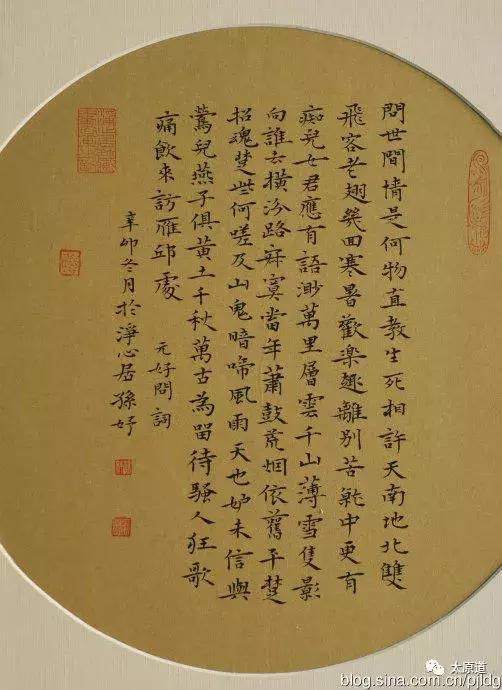 問世間情是何物直教生死相許天南地北雙
飛客老翅幾回寒暑歡樂趣離別苦就中更有
痴兒女君應有語渺萬里層雲千山薄雪隻影
向誰去橫汾路寂寞當年蕭鼓荒烟依舊平楚
招魂楚些何嗟及山鬼暗啼風雨天也妒未信與
鶯兒燕子俱黃土千秋萬古為留待騷人狂歌
痛飲來訪雁邱處
元好問詞
辛卯冬月於淨心居孫妤
太原道
blog.sina.com.cn/pjldg